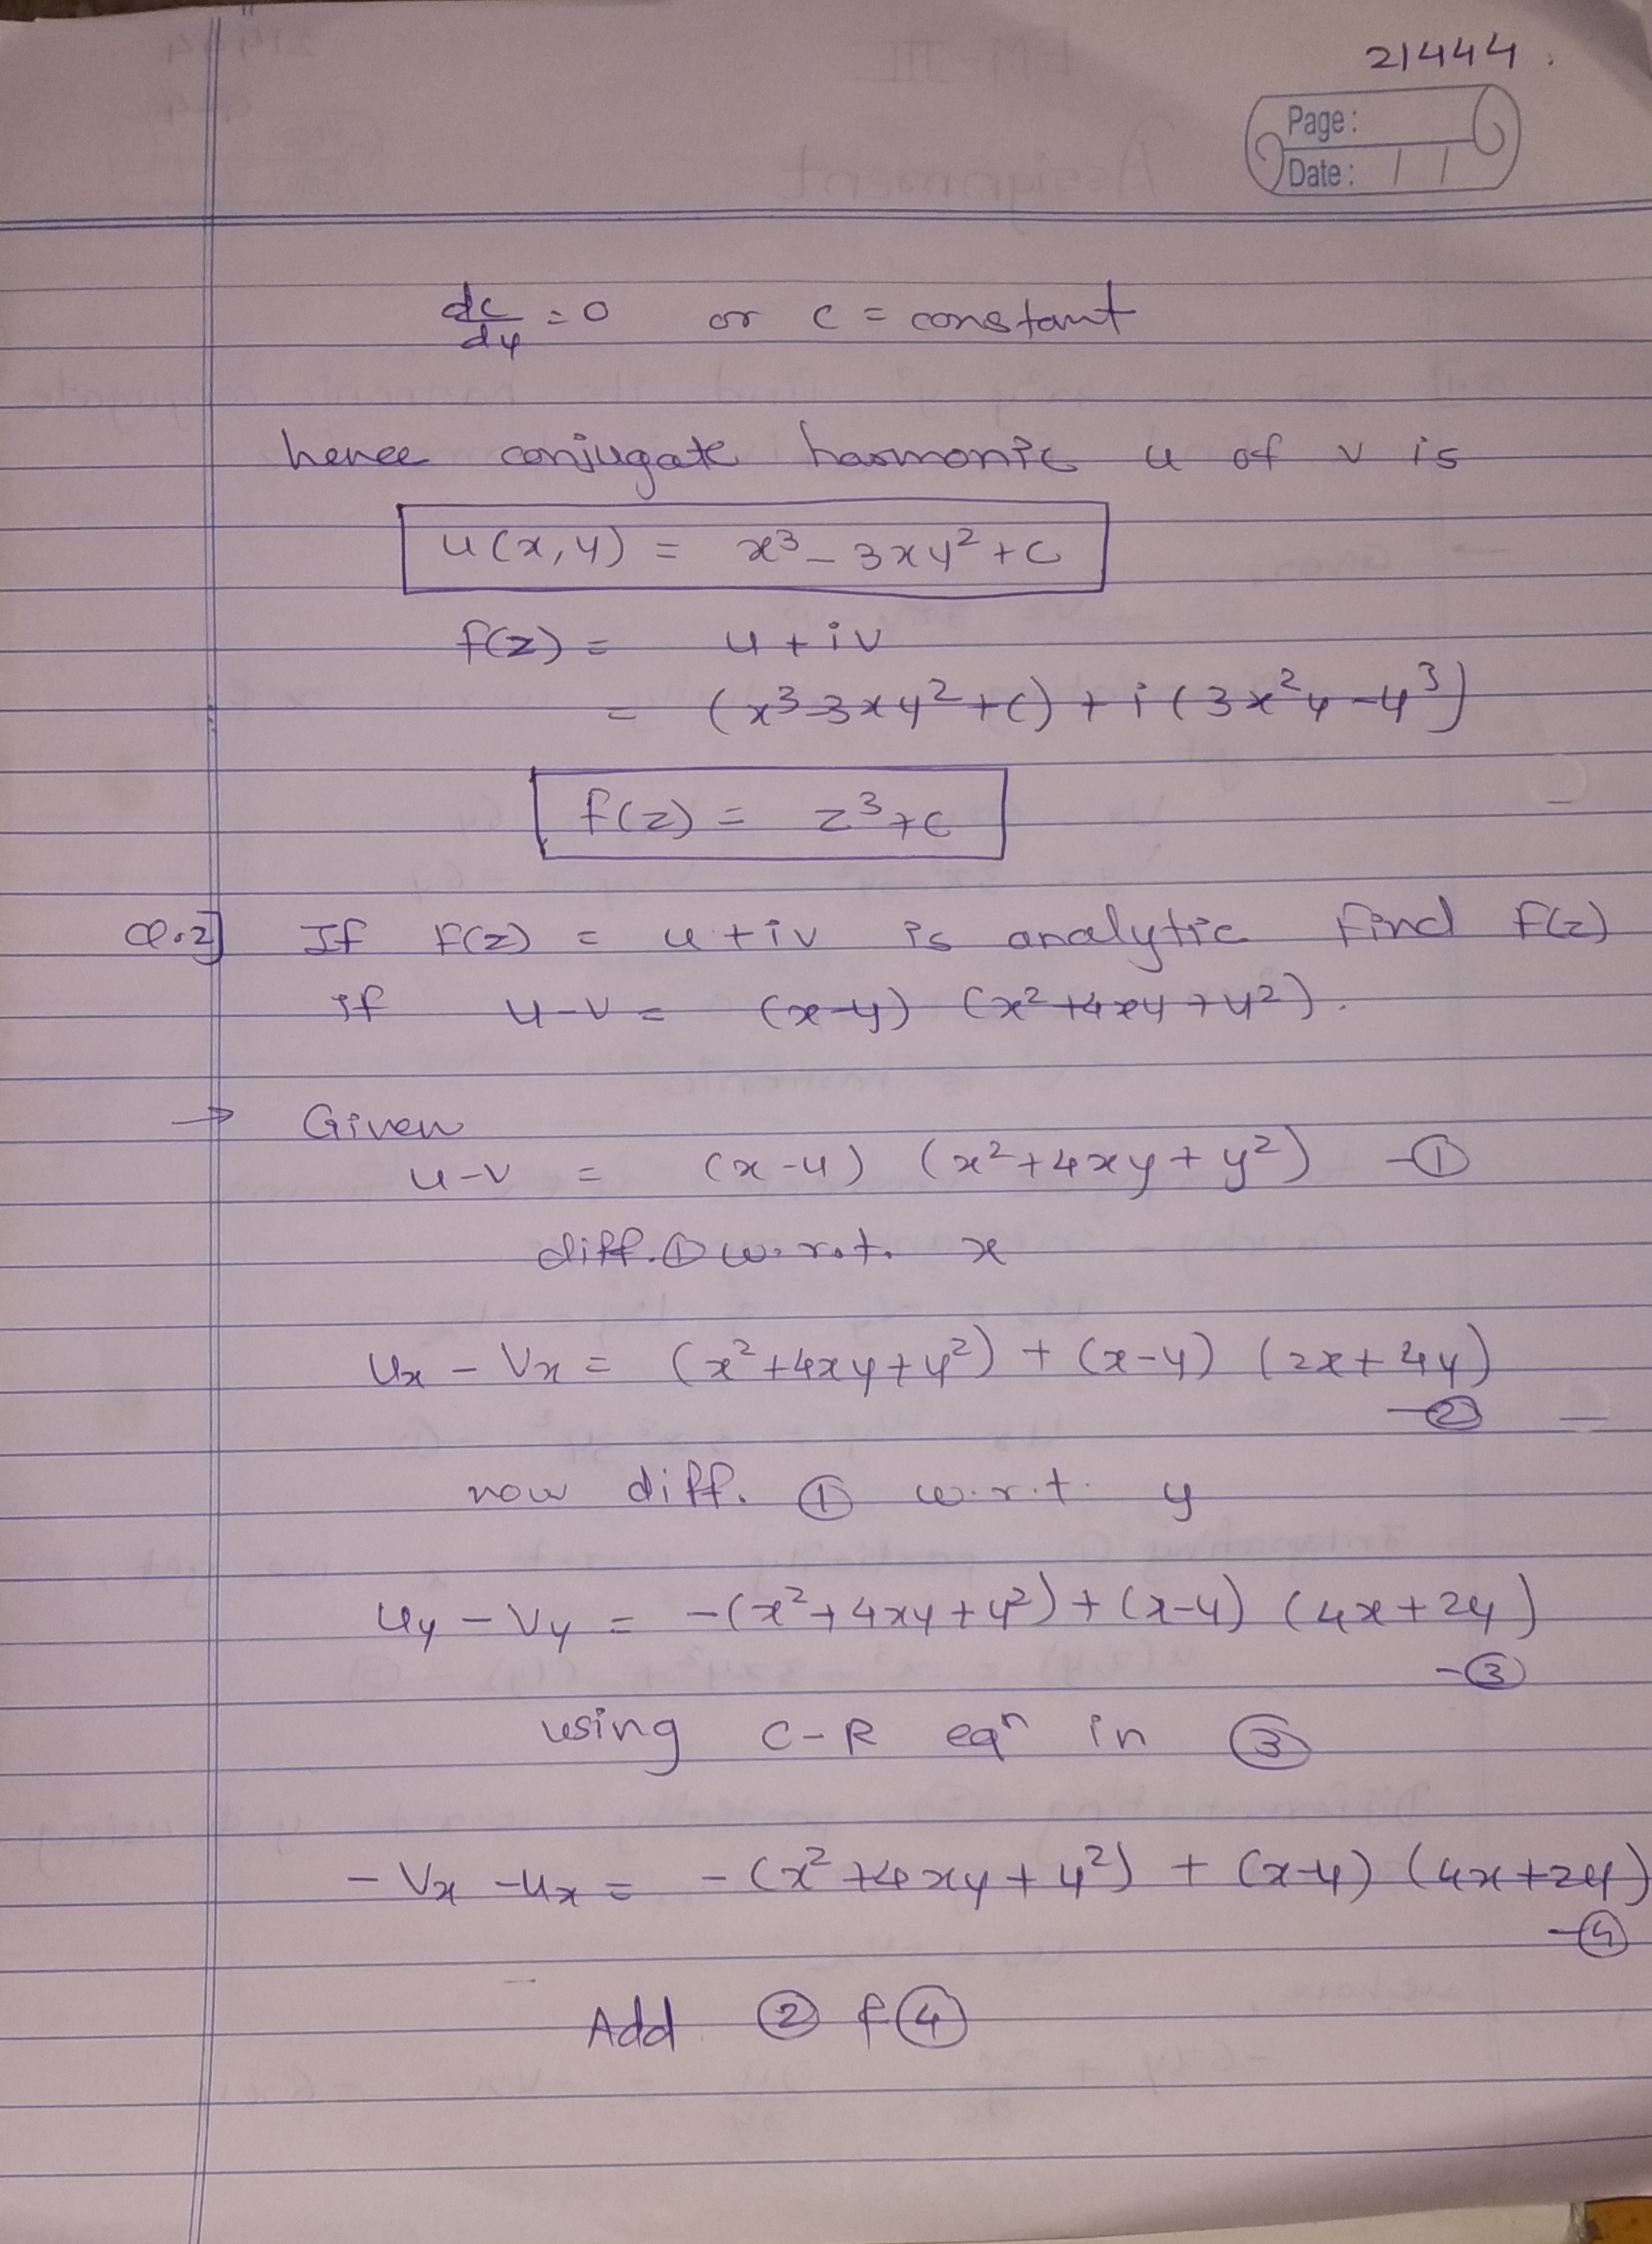 21444.
Page:
Date: / /
dc/dy = 0 or c = constant
hence conjugate harmonic u of v is
u(x,y) = x³ - 3xy² + c
f(z) = u + iv
= (x³-3xy²+c) + i(3x²y-y³)
f(z) = z³+c
Q.2] If F(z) = u + iv is analytic find f(z)
if u-v = (x-y) (x²+4xy+y²).
→ Given
u-v = (x-y) (x²+4xy+y²) -①
diff.① w.r.t. x
ux - Vx = (x²+4xy+y²) + (x-y) (2x+4y)
-②
now diff. ① w.r.t. y
uy - Vy = -(x²+4xy+y²) + (x-y) (4x+2y)
-③
using C-R eqⁿ in ③
- Vx - ux = - (x²+4xy+y²) + (x-y) (4x+2y)
-④
Add ② & ④